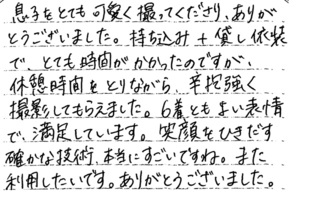 息子をとても可愛く撮ってくださり、ありが
とうございました。持ち込み + 貸し依装
で、とても時間がかかったのですが、
休憩時間をとりながら、辛抱強く
撮影してもらえました。6着ともよい表情
で、満足しています。笑顔をひきだす
確かな技術、本当にすごいですね。また
利用したいです。ありがとうございました。